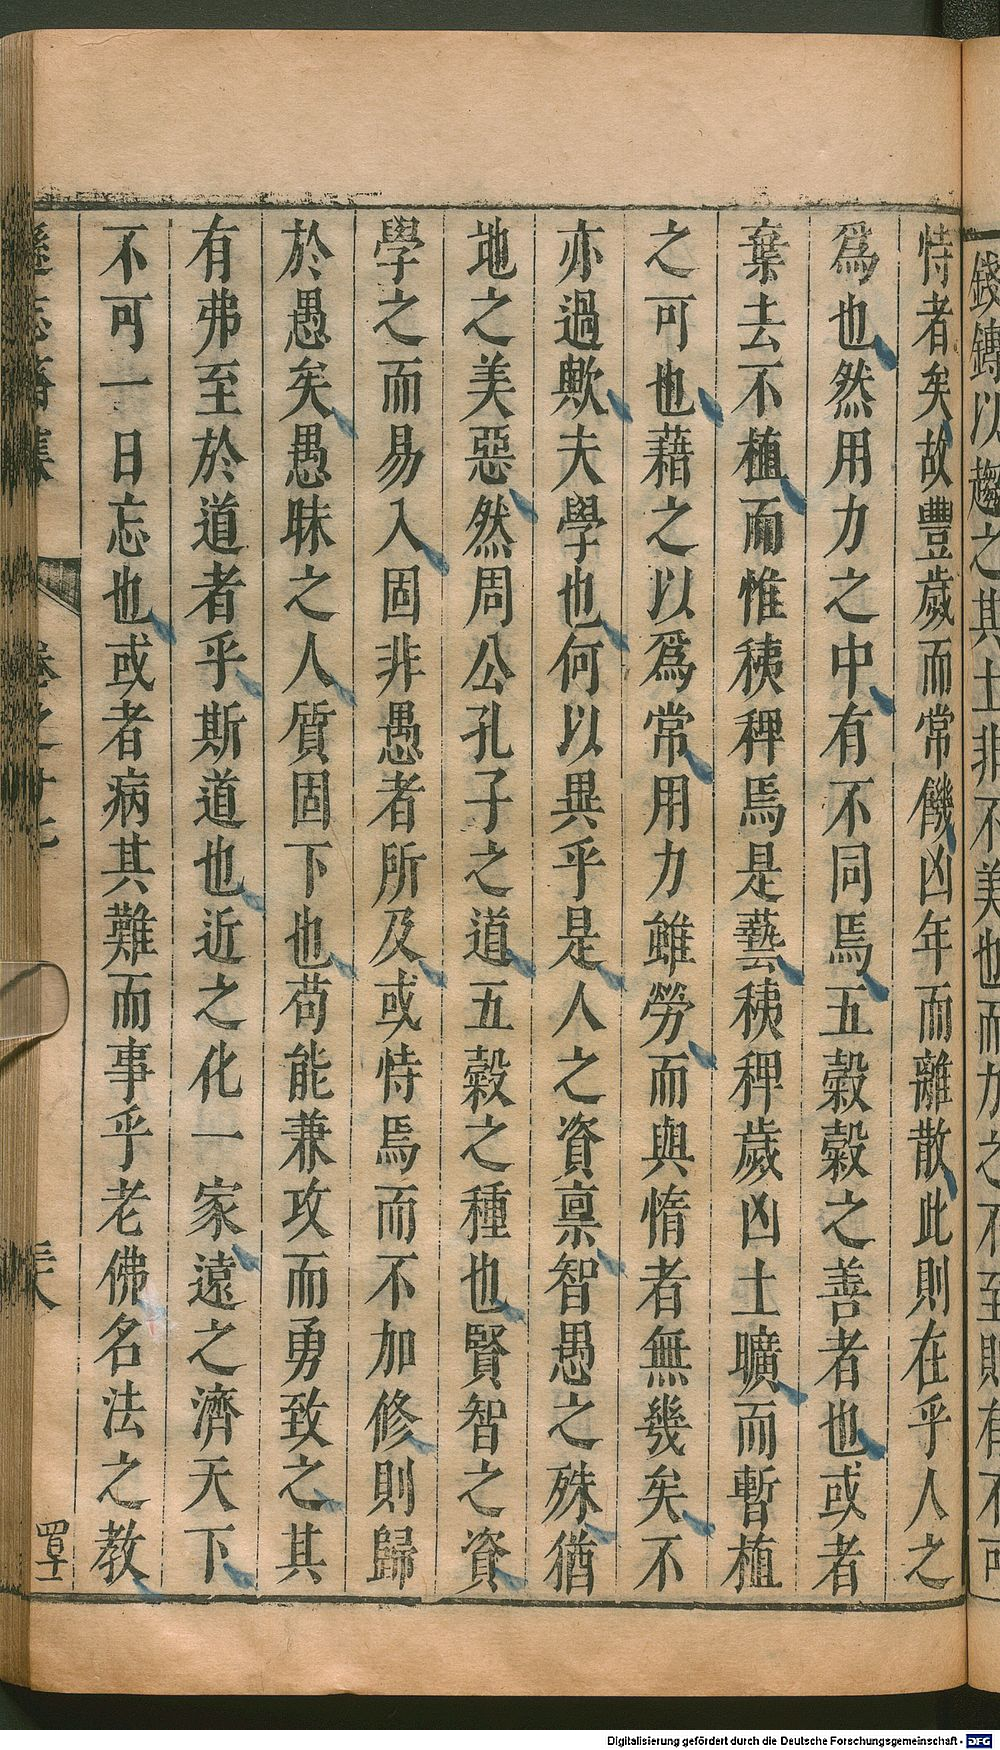 錢鎛以趨之其土非不美也而力之不至則有不可
恃者矣故豐歲而常饑凶年而離散此則在乎人之
爲也然用力之中有不同焉五穀穀之善者也或者
棄去不植而惟稊稗焉是藝稊稗歲凶土曠而暫植
之可也藉之以爲常用力雖勞而與惰者無幾矣不
亦過歟夫學也何以異乎是人之資禀智愚之殊猶
地之美惡然周公孔子之道五穀之種也賢智之資
學之而易入固非愚者所及或恃焉而不加修則歸
於愚矣愚昧之人質固下也苟能兼攻而勇致之其
有弗至於道者乎斯道也近之化一家遠之濟天下
不可一日忘也或者病其難而事乎老佛名法之教
遜志齋集 卷之十七
Digitalisierung gefördert durch die Deutsche Forschungsgemeinschaft - DFG